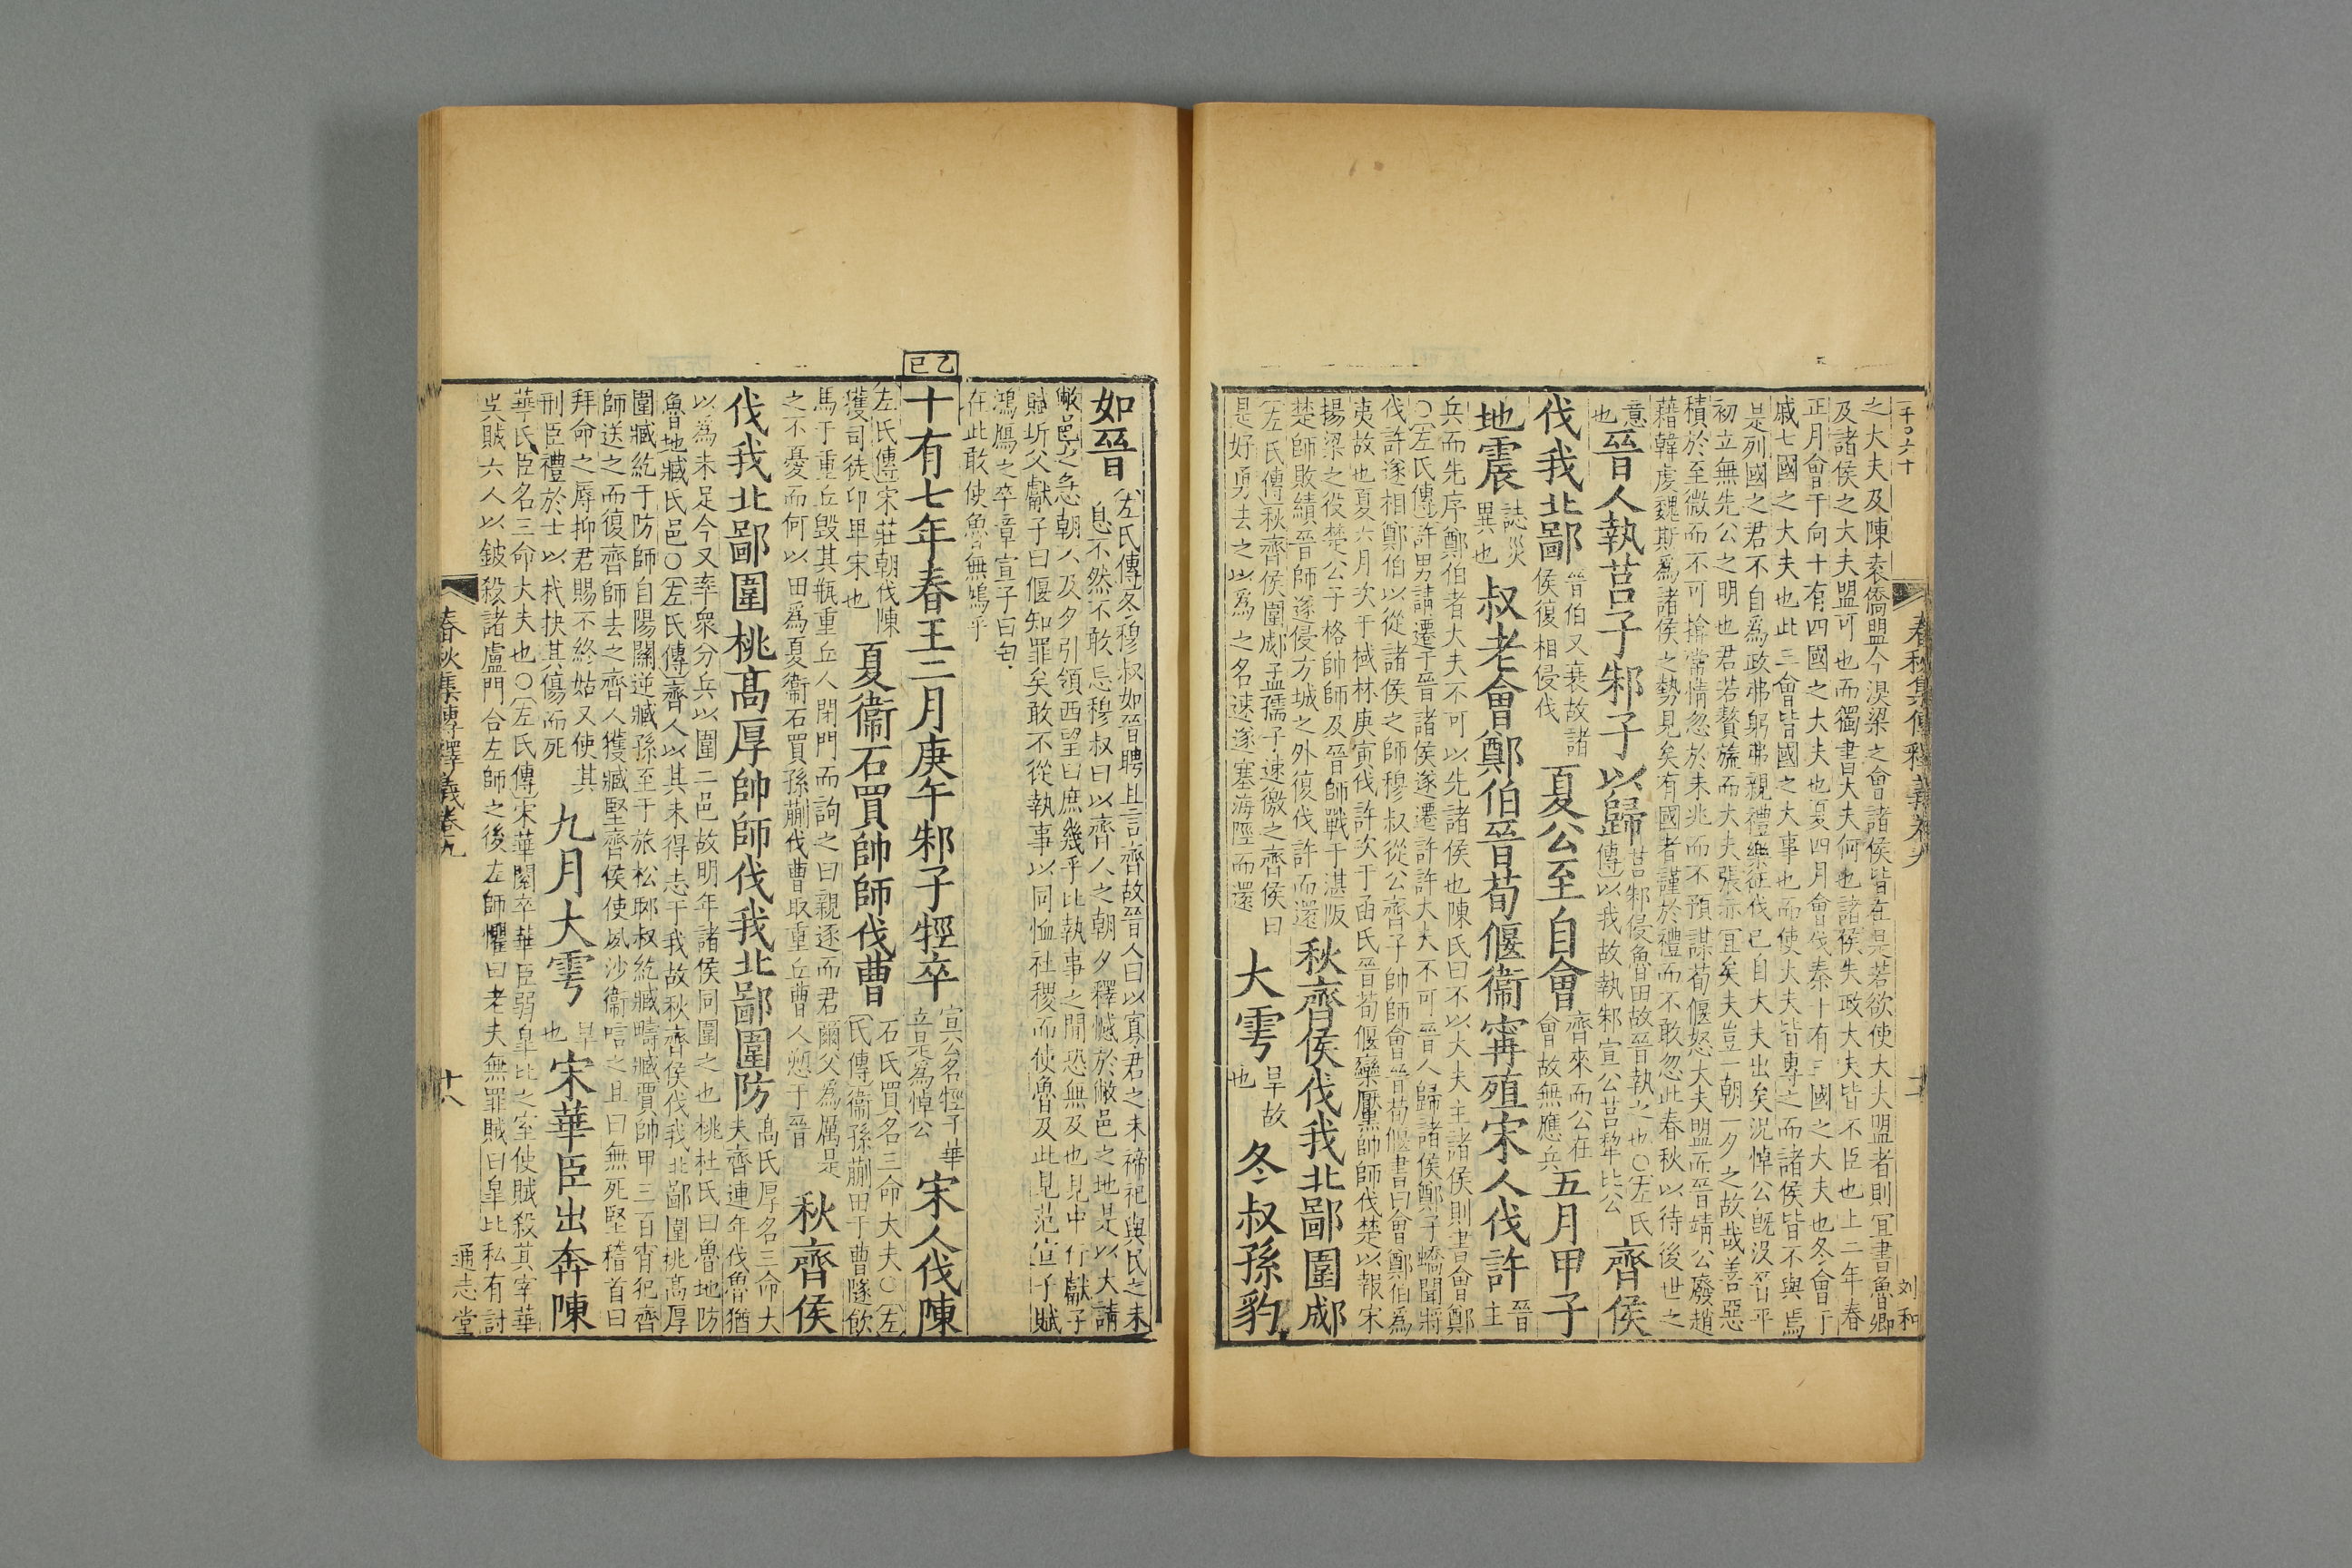 一千〇六十
春秋集傳釋義卷九
刘和
之大夫及陳袁僑盟今湨梁之會諸侯皆在是若欲使大夫盟者則宜書魯卿
及諸侯之大夫盟可也而獨書大夫何也諸侯失政大夫皆不臣也上二年春
正月會于向十有四國之大夫也夏四月會伐秦十有三國之大夫也冬會于
戚七國之大夫也此三會皆國之大事也而使大夫皆專之而諸侯皆不與焉
是列國之君不自爲政弗躬弗親禮樂征伐已自大夫出矣況悼公既没晉平
初立無先公之明也君若贅旒而大夫張亦宜矣夫豈一朝一夕之故哉善惡
積於至微而不可揜常情忽於未兆而不預謀荀偃怒大夫盟而晉靖公廢趙
藉韓虔魏斯爲諸侯之勢見矣有國者謹於禮而不敢忽此春秋以待後世之
意也
晉人執莒子邾子以歸
莒邾侵魯田故晉執之也〇左氏
傳以我故執邾宣公莒犂比公
齊侯
伐我北鄙
晉伯又衰故諸
侯復相侵伐
夏公至自會
齊來而公在
會故無應兵
五月甲子
地震
誌災
異也
叔老會鄭伯晉荀偃衞甯殖宋人伐許
晉主
兵而先序鄭伯者大夫不可以先諸侯也陳氏曰不以大夫主諸侯則書會鄭
〇左氏傳許男請遷于晉諸侯遂遷許許大夫不可晉人歸諸侯鄭子蟜聞將
伐許遂相鄭伯以從諸侯之師穆叔從公齊子帥師會晉荀偃書曰會鄭伯爲
夷故也夏六月次于棫林庚寅伐許次于函氏晉荀偃欒黶帥師伐楚以報宋
揚梁之役楚公子格帥師及晉師戰于湛阪
楚師敗績晉師遂侵方城之外復伐許而還
秋齊侯伐我北鄙圍郕
左氏傳秋齊侯圍郕孟孺子速徼之齊侯曰
是好勇去之以爲之名速遂塞海陘而還
大雩
旱故
也
冬叔孫豹
如晉
左氏傳冬穆叔如晉聘且言齊故晉人曰以寡君之未禘祀與民之未
息不然不敢忘穆叔曰以齊人之朝夕釋憾於敝邑之地是以大請
敝邑之急朝不及夕引領西望曰庶幾乎比執事之閒恐無及也見中行獻子
賦圻父獻子曰偃知罪矣敢不從執事以同恤社稷而使魯及此見范宣子賦
鴻鴈之卒章宣子曰匄
在此敢使魯無鳩乎
乙巳
十有七年春王二月庚午邾子牼卒
宣公名牼子華
音是爲悼公
宋人伐陳
左氏傳宋莊朝伐陳
獲司徒卬卑宋也
夏衞石買帥師伐曹
石氏買名三命大夫〇左
氏傳衞孫蒯田于曹隧飲
馬于重丘毀其瓶重丘人閉門而訽之曰親逐而君爾父爲厲是
之不憂而何以田爲夏衞石買孫蒯伐曹取重丘曹人愬于晉
秋齊侯
伐我北鄙圍桃高厚帥師伐我北鄙圍防
高氏厚名三命大
夫齊連年伐魯猶
以爲未足今又率衆分兵以圍二邑故明年諸侯同圍之也桃杜氏曰魯地防
魯地臧氏邑〇左氏傳齊人以其未得志于我故秋齊侯伐我北鄙圍桃高厚
圍臧紇于防師自陽關逆臧孫至于旅松郰叔紇臧疇臧賈帥甲三百宵犯齊
師送之而復齊師去之齊人獲臧堅齊侯使夙沙衞唁之且曰無死堅稽首曰
拜命之辱抑君賜不終姑又使其
刑臣禮於士以杙抉其傷而死
九月大雩
旱
也
宋華臣出奔陳
華氏臣名三命大夫也〇左氏傳宋華閱卒華臣弱皐比之室使賊殺其宰華
吳賊六人以鈹殺諸盧門合左師之後左師懼曰老夫無罪賊曰皐比私有討
春秋集傳釋義卷九
十八
通志堂